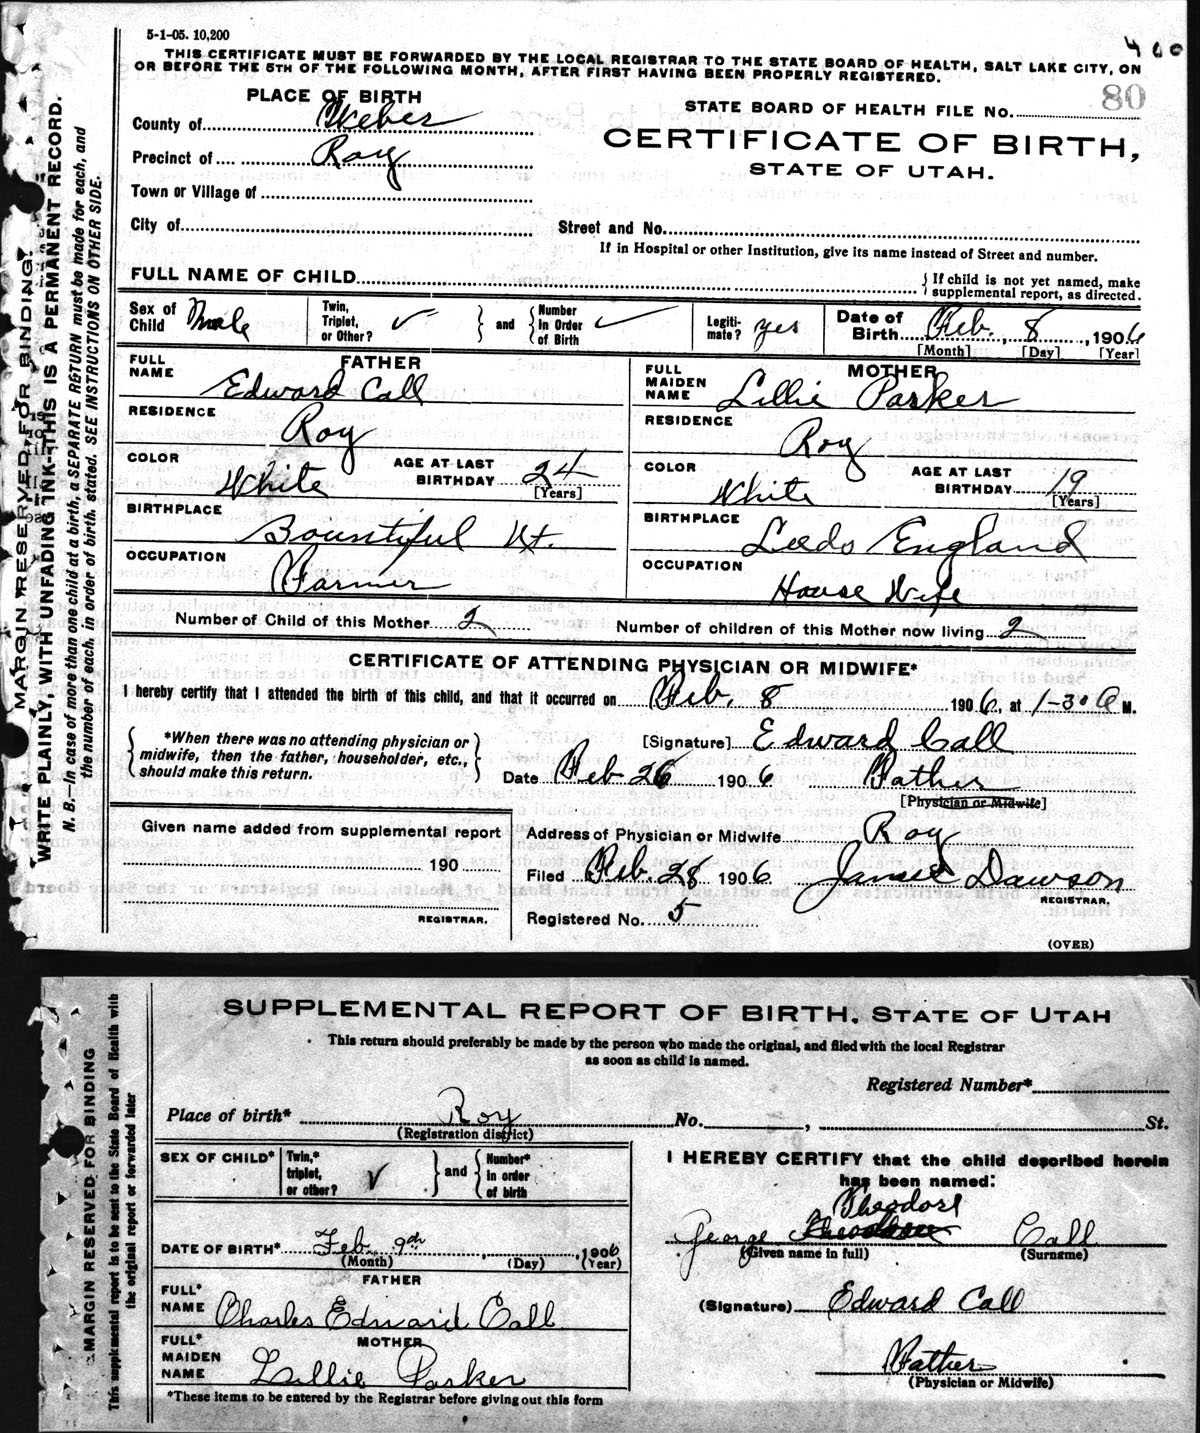 5-1-05. 10,200
400
THIS CERTIFICATE MUST BE FORWARDED BY THE LOCAL REGISTRAR TO THE STATE BOARD OF HEALTH, SALT LAKE CITY, ON
OR BEFORE THE 5TH OF THE FOLLOWING MONTH, AFTER FIRST HAVING BEEN PROPERLY REGISTERED.
80
PLACE OF BIRTH
STATE BOARD OF HEALTH FILE No.
County of Weber
CERTIFICATE OF BIRTH,
Precinct of Roy
STATE OF UTAH.
Town or Village of
City of
Street and No.
If in Hospital or other Institution, give its name instead of Street and number.
FULL NAME OF CHILD
{ If child is not yet named, make
supplemental report, as directed.
Sex of Child Male
Twin, Triplet, or Other? ✓
} and {
Number in Order of Birth ✓
Legiti-mate? yes
Date of Birth Feb. 8, 1906
[Month] [Day] [Year]
FATHER
FULL NAME Edward Call
MOTHER
FULL MAIDEN NAME Lillie Parker
RESIDENCE Roy
RESIDENCE Roy
COLOR White AGE AT LAST BIRTHDAY 24 [Years]
COLOR White AGE AT LAST BIRTHDAY 19 [Years]
BIRTHPLACE Bountiful Ut.
BIRTHPLACE Leeds England
OCCUPATION Farmer
OCCUPATION House Wife
Number of Child of this Mother 2
Number of children of this Mother now living 2
CERTIFICATE OF ATTENDING PHYSICIAN OR MIDWIFE*
I hereby certify that I attended the birth of this child, and that it occurred on Feb. 8 1906, at 1-30 a M.
{ *When there was no attending physician or
midwife, then the father, householder, etc.,
should make this return. }
[Signature] Edward Call
Date Feb 26 1906 Father
[Physician or Midwife]
Given name added from supplemental report
190
REGISTRAR.
Address of Physician or Midwife Roy
Filed Feb. 28 1906 James Dawson
REGISTRAR.
Registered No. 5
(OVER)
MARGIN RESERVED FOR BINDING.
WRITE PLAINLY, WITH UNFADING INK—THIS IS A PERMANENT RECORD.
N. B.—In case of more than one child at a birth, a SEPARATE RETURN must be made for each, and
the number of each, in order of birth, stated. SEE INSTRUCTIONS ON OTHER SIDE.
SUPPLEMENTAL REPORT OF BIRTH. STATE OF UTAH
This return should preferably be made by the person who made the original, and filed with the local Registrar
as soon as child is named.
Registered Number*
Place of birth* Roy No. , St.
(Registration district)
SEX OF CHILD*
Twin,* triplet, or other? ✓
} and {
Number* in order of birth
I HEREBY CERTIFY that the child described herein
has been named:
Theodore
George Call
(Given name in full) (Surname)
DATE OF BIRTH* Feb. 9th, 1906
(Month) (Day) (Year)
FATHER
FULL* NAME Charles Edward Call
(Signature) Edward Call
MOTHER
FULL* MAIDEN NAME Lillie Parker
Father
(Physician or Midwife)
*These items to be entered by the Registrar before giving out this form
MARGIN RESERVED FOR BINDING
This supplemental report to be sent to the State Board of Health with
the original report or forwarded later